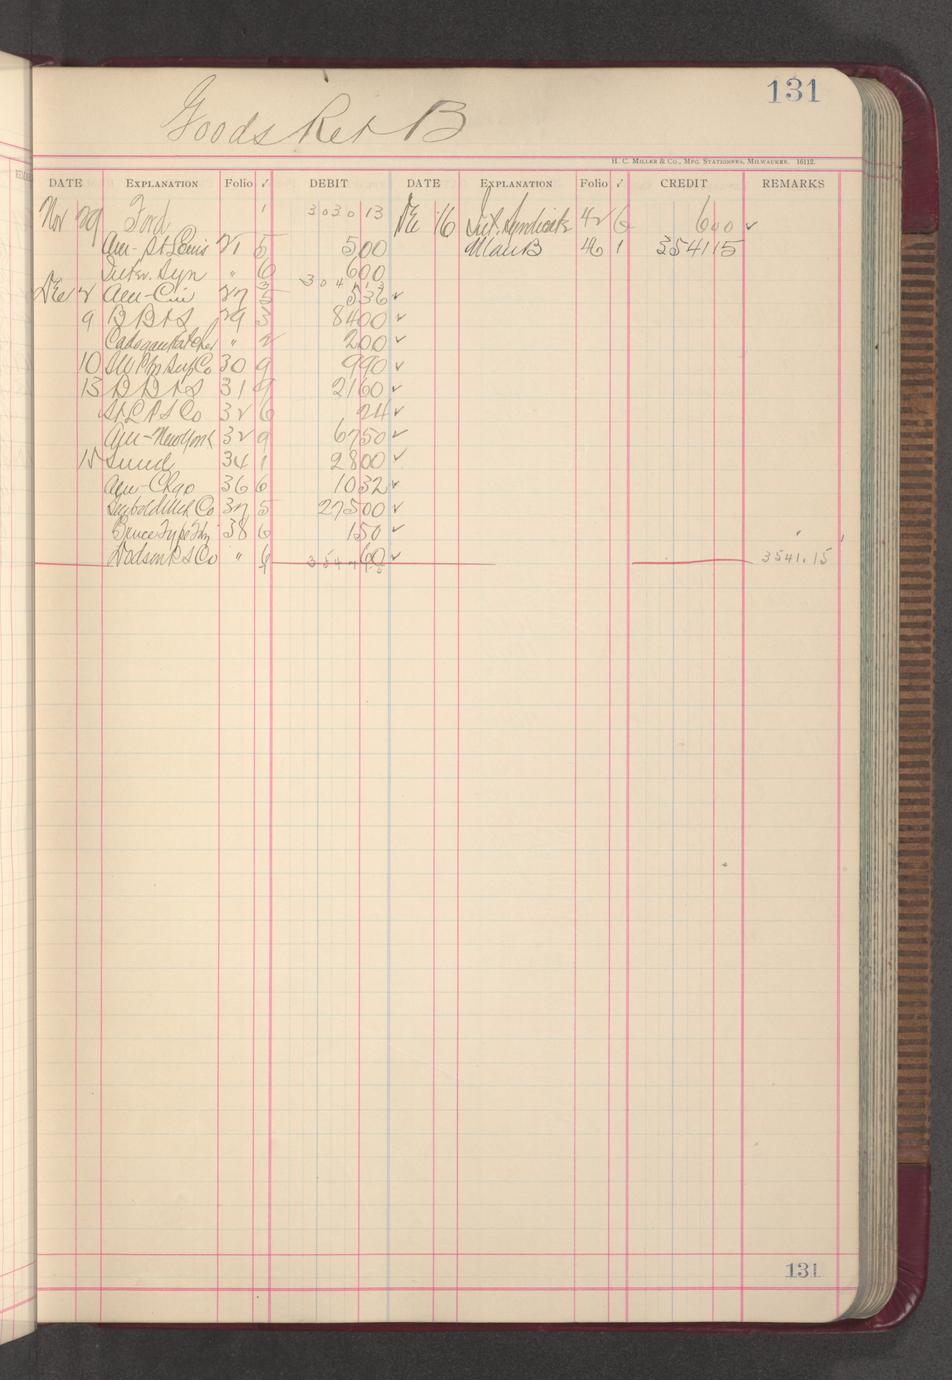 131
Goods Ret B
H. C. MILLER & CO., MFG. STATIONERS, MILWAUKEE. 16112.
DATE EXPLANATION Folio ✓ DEBIT DATE EXPLANATION Folio ✓ CREDIT REMARKS
Nov 29 Ford 1 3030 13 Dec 16 Int. Syndicate 42 6 600 ✓
Am- St Louis 21 5 500 46 1 3541 15
Inter. Syn " 6 600
Dec 2 Am- Cin 27 5 536 ✓
9 B B & S 29 3 8400 ✓
" 2 200 ✓
10 30 9 990 ✓
13 B B & S 31 9 2160 ✓
St L P S Co 32 6 24 ✓
Am- New York 32 9 6750 ✓
15 34 1 2800 ✓
Am- Chgo 36 6 1032 ✓
Co 37 5 27500 ✓
Bruce Type Fdy 38 6 150 ✓
Dodson P S Co " 6 60 ✓
3541.15
131